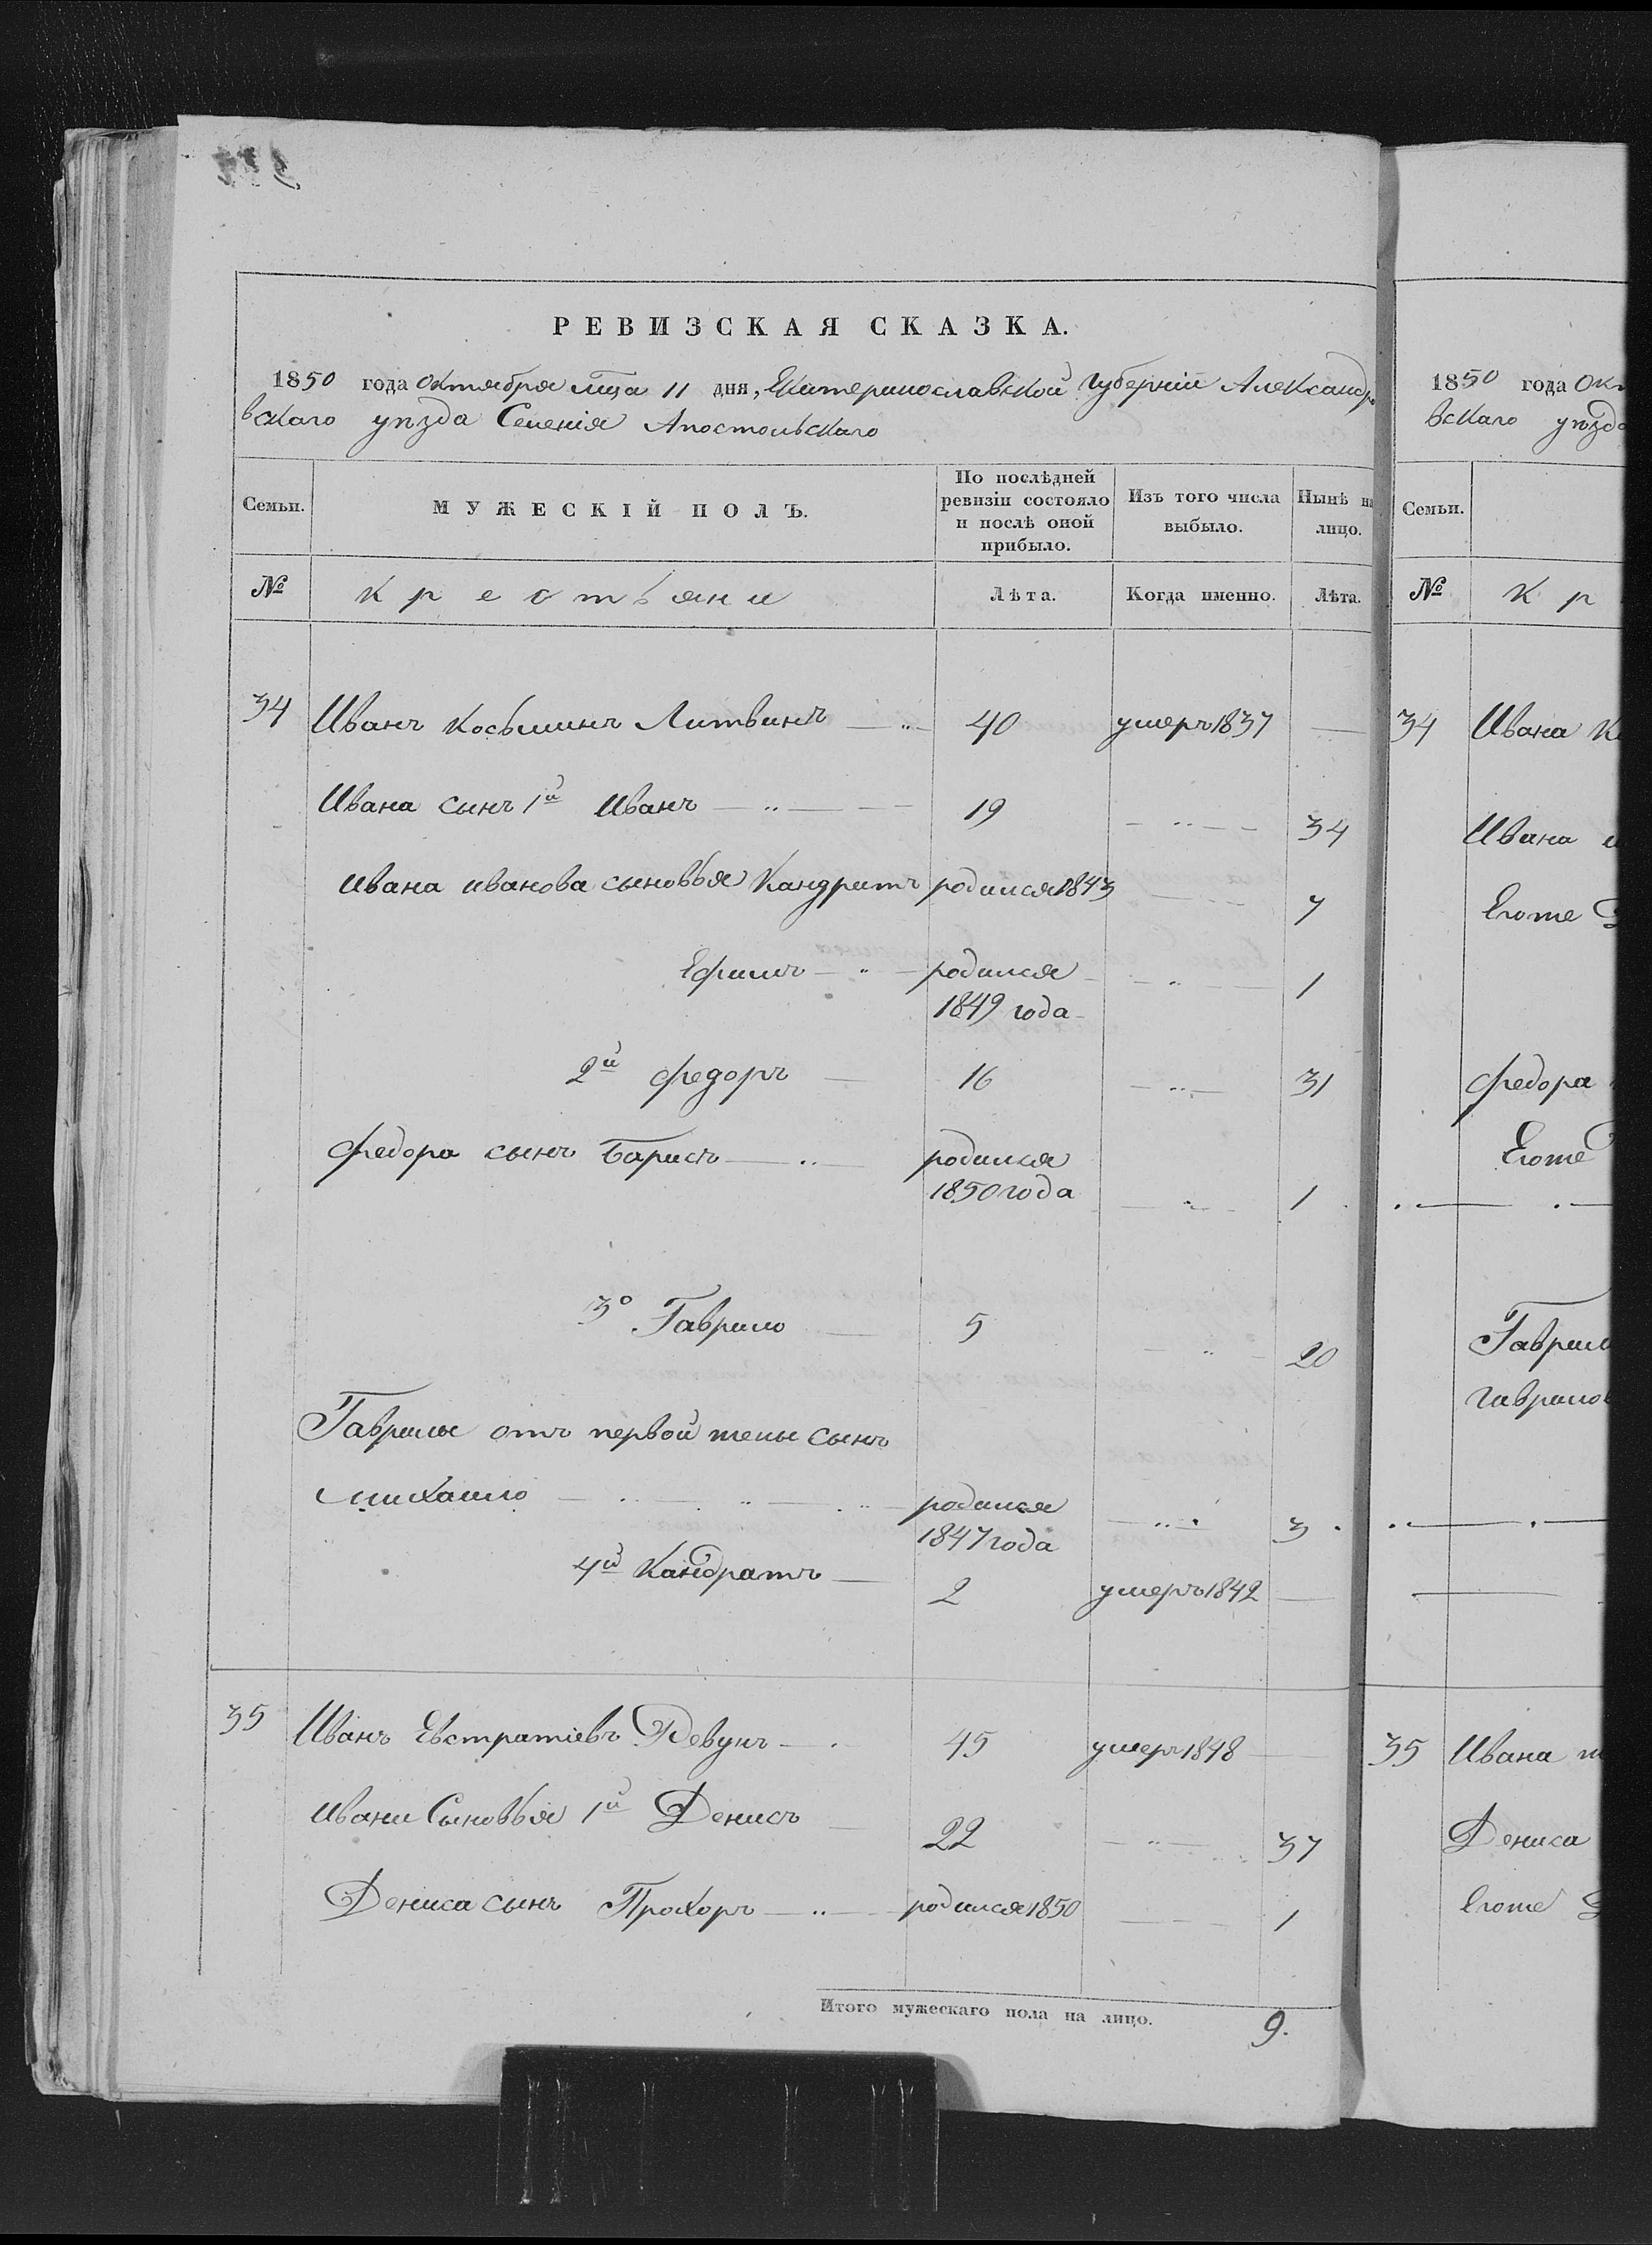 РЕВИЗСКАЯ СКАЗКА.
1850 года Октября мца 11 дня, Екатеринославской Губерніи Александро
вскаго уѣзда Селенія Апостольскаго
Семьи.
МУЖЕСКІЙ ПОЛЪ.
По послѣдней ревизіи состояло и послѣ оной прибыло.
Изъ того числа выбыло.
Нынѣ на лицо.
№
крестьяни
Лѣта.
Когда именно.
Лѣта.
34 Иванъ Косьминъ Литвинъ 40 умеръ 1837
Ивана сынъ 1й Иванъ 19 34
Ивана иванова сыновья Кандратъ родился 1843 7
Ефимъ родился 1
1849 года
2й Федоръ 16 31
Федора сынъ Барисъ родился
1850 года 1
3º Гаврило 5 20
Гаврилы отъ первой жены сынъ
Михайло родился
1847 года 3
4й Кандратъ 2 умеръ 1842
35 Иванъ Евстратіевъ Ревунъ 45 умеръ 1848
Ивана Сыновья 1й Денисъ 22 37
Дениса сынъ Прохоръ родился 1850 1
Итого мужескаго пола на лицо. 9.
1850 года Ок
вскаго уѣзда
Семьи.
№
Кр
34 Ивана
Ивана
Егоже
Федора
Егоже
Гаврил
Гаврилов
35 Ивана
Дениса
Егоже